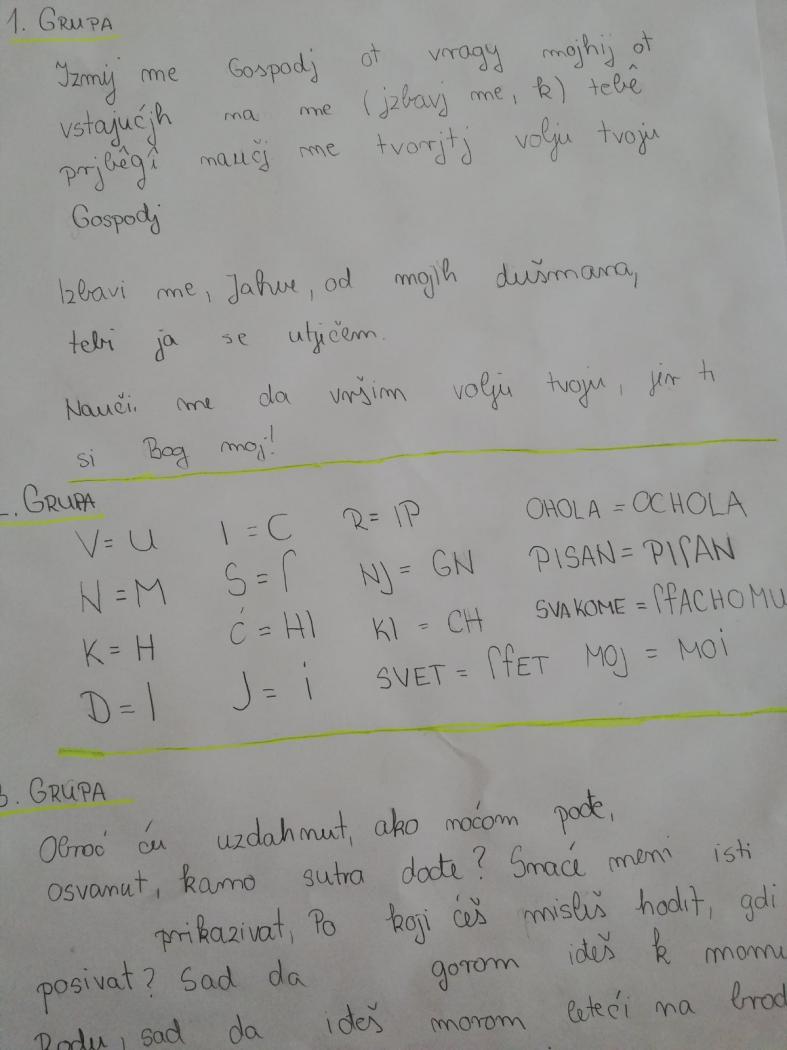 1. GRUPA
Izmij me Gospodj ot vragy mojhij ot
vstajućjh na me (jzbavj me, k) tebê
prjbêgî naučj me tvorjtj volju tvoju
Gospodj
Izbavi me, Jahve, od mojih dušmana,
tebi ja se utjičem.
Nauči me da vršim volju tvoju, jer ti
si Bog moj!
. GRUPA
V = U I = C R = IP OHOLA = OCHOLA
N = M S = ſ NJ = GN PISAN = PIſAN
K = H Ć = HI KI = CH SVAKOME = ſfACHOMU
D = I J = i SVET = ſfET MOJ = MOi
3. GRUPA
Obroć ću uzdahnut, ako noćom pođe,
osvanut, kamo sutra dođe? Smaće meni isti
prikazivat, Po koji ćeš misliš hodit, gdi
posivat? Sad da gorom ideš k momu
Rodu, sad da ideš morom leteći na brod